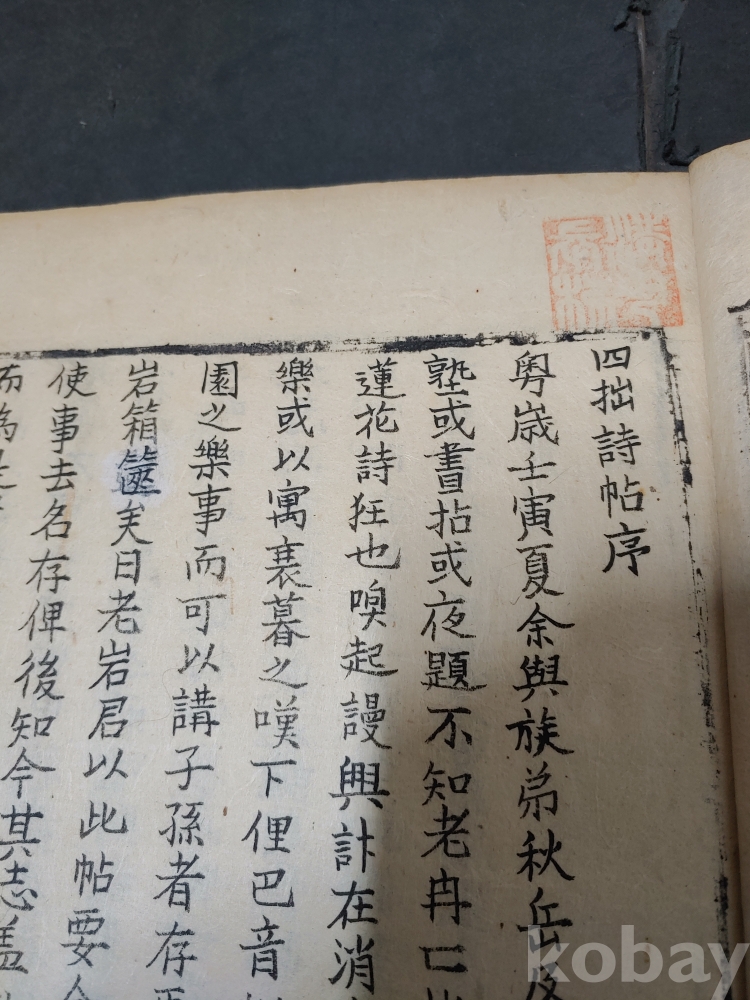 四拙詩帖序
粤歲壬寅夏余與族弟秋岳
塾或晝拈或夜題不知老冉
蓮花詩狂也嗅起謾興計在消
樂或以寓衰暮之嘆下俚巴音
園之樂事而可以講子孫者存
岩箱篋矣日老岩君以此帖要
使事去名存俾後知今其志盖
而為
kobay